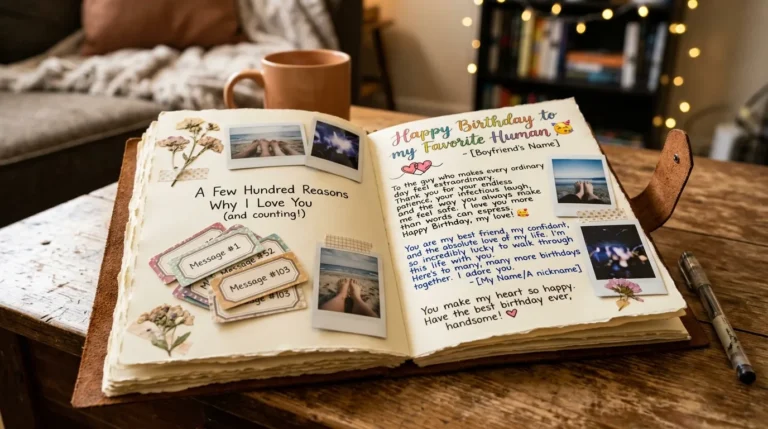 A Few Hundred Reasons
Why I Love You
(and counting!)
Message #1
Message #52
Message #103
#103
Happy Birthday to
my Favorite Human 🥳
- [Boyfriend's Name]
To the guy who makes every ordinary
day feel extraordinary,
Thank you for your endless
patience, your infectious laugh,
and the way you always make
me feel safe. I love you more
than words can espress.
Happy Birthday, my love! 🥳
You are my best friend, my confidant,
and the absolute love of my life. I'm
so incredibly lucky to walk through
this life with you.
Here's to many, many more birthdays
together. I adore you.
- [My Name/A nickname]
You make my heart so happy.
Have the best birthday ever,
handsome! 💗